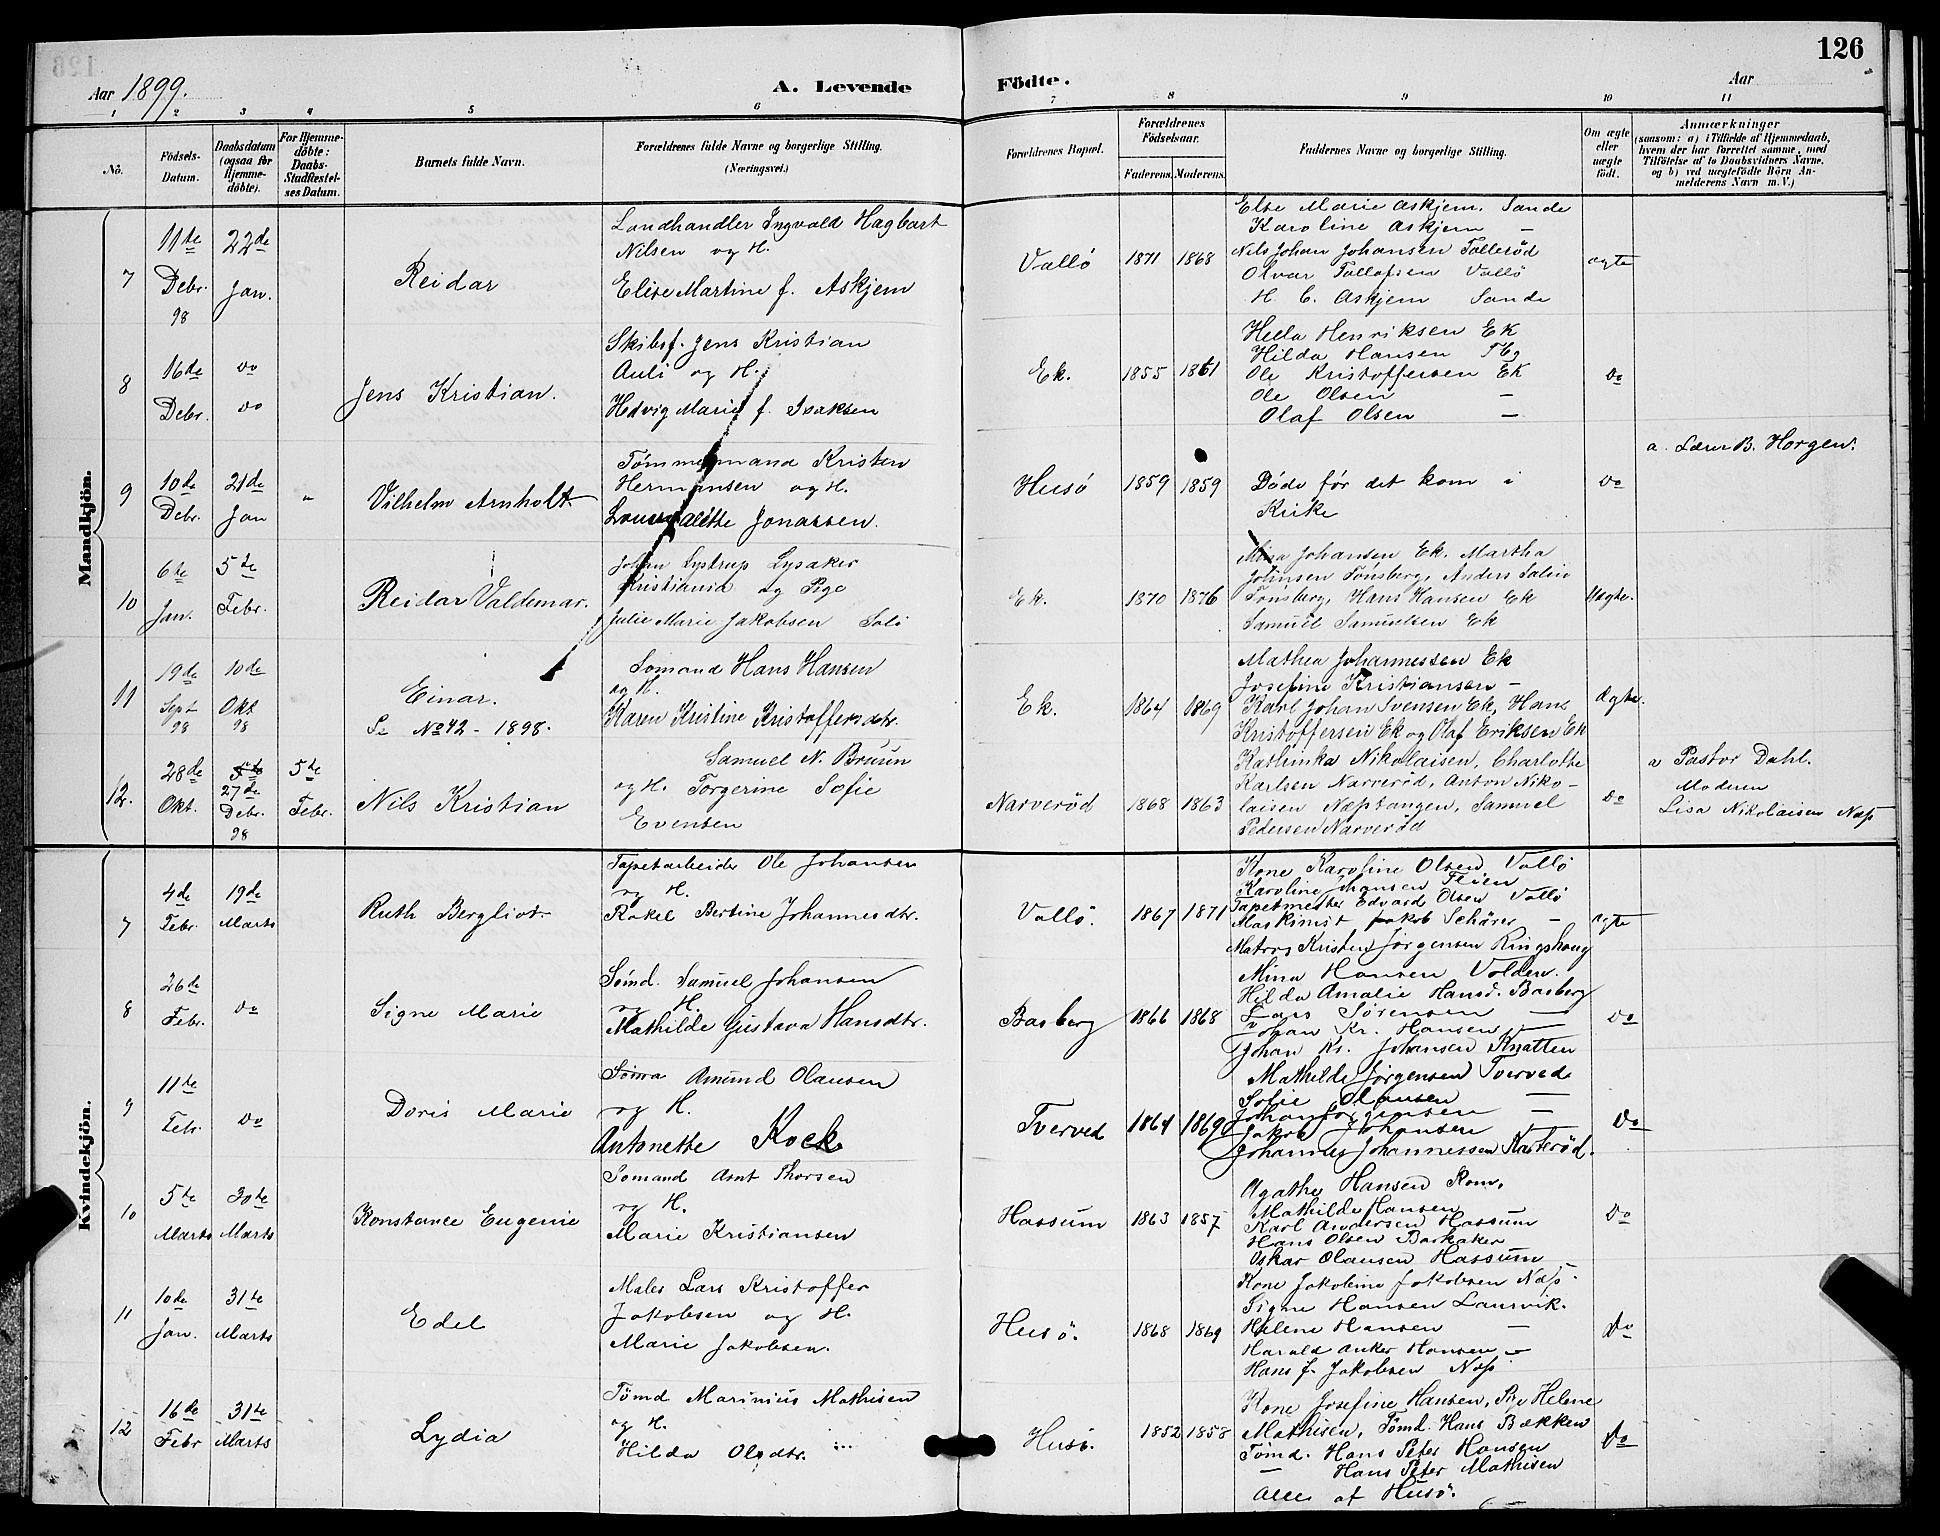 126
Aar 1899.
A. Levende Födte.
Aar
1 2 3 4 5 6 7 8 9 10 11
No.
Födsels-Datum.
Daabsdatum (ogsaa for Hjemme-döbte).
For Hjemme-döbte: Daabs-Stadfestel-ses Datum.
Barnets fulde Navn.
Forældrenes fulde Navne og borgerlige Stilling.
(Næringsvei.)
Forældrenes Bopæl.
Forældrenes Födselsaar.
Faderens. Moderens.
Faddernes Navne og borgerlige Stilling.
Om ægte eller uægte født.
Anmærkninger
(saasom: a) i Tilfælde af Hjemmedaab, hvem der har forrettet samme, med Tilföielse af to Daabsvidners Navne, og b) ved uægtefödte Börn An-melderens Navn m.V.)
Mandkjön.
7
11te Debr. 98
22de Jan.
Reidar
Landhandler Ingvald Hagbart
Nilsen og H.
Elise Martine f. Askjem
Vallö
1871 1868
Else Marie Askjem. Sande
Karoline Askjem –
Nils Johan Johansen Tallerød
Olvar Tollofsen Vallö
H. C. Askjem Sande
ægte
8
16de Debr.
do do
Jens Kristian.
Skibsf. Jens Kristian
Auli og H.
Hedvig Marie f. Isaksen
Ek.
1855 1861
Hella Henriksen Ek
Hilda Hansen
Ole Kristoffersen Ek
Ole Olsen –
Olaf Olsen –
do
9
10de Debr.
21de Jan
"
Vilhelm Arnholt
Tømmermand Kristen
Hermansen og H.
Alette Jonassen.
Husö
1859 1859
Døde før det kom i
Kirke
do
a. Lærer B. Horgen.
10
6te Jan.
5te Febr.
Reidar Valdemar.
Johan Lystrup Lysaker
Kristiania og Pige
Julie Marie Jakobsen
Ek.
1870 1876
Johansen Ek. Martha
Johnsen Tönsberg, Anders
Tönsberg, Hans Hansen Ek
Samuel Samuelsen Ek
Uægte.
11
19de Sept 98
10de Okt 98
Einar.
Se No 42 - 1898.
Sømand Hans Hansen
og H.
Karen Kristine Kristoffersdtr.
Ek.
1864 1869
Mathea Johannessen Ek
Josefine Kristiansen –
Karl Johan Svensen Ek, Hans
Kristoffersen Ek og Olaf Eriksen Ek
Ægte.
12.
28de Okt.
5te
27de Debr. 98
5te Febr.
Nils Kristian
Samuel N. Bruun
og H. Torgerine Sofie
Evensen
Narverød
1868 1863
Kathinka Nikolaisen, Charlotte
Karlsen Narverød, Anton Niko-
laisen Næstangen, Samuel
Pedersen Narverød
do
a Pastor Dahl.
Moderen
Lisa Nikolaisen Næs
Kvindekjön.
7
4de Febr.
19de Marts
Ruth Bergliot
Tapetarbeider Ole Johansen
og H.
Rakel Bertine Johannesdtr.
Vallö.
1867 1871
Kone Karoline Olsen Vallö
Karoline Johansen
Tapetmester Edvard Olsen Vallö
Maskinist Jakob Schärer –
Matros Kristen Jørgensen Ringshaug
ægte
8
26de Febr.
do
Signe Marie
Sömd. Samuel Johansen
og H.
Mathilde Gustava Hansdtr.
Basberg
1866 1868
Mina Hansen Volden.
Hilda Amalie Hansd. Basberg
Lars Sörensen –
Johan Kr. Hansen –
Johan Kr. Johansen Knatten
do
9
11te Febr.
do
Doris Marie
Amund Olausen
og H.
Antonette Kock
Tverved
1864 1869
Mathilde Jørgensen Tverved
Sofie Olausen –
Johan Jørgensen –
Jakob Johansen
Johannes Johannessen
Do
10
5te Marts
30te Marts
Konstance Eugenie
Sømand Arnt Thorsen
og H.
Marie Kristiansen
Hassum
1863 1857
Agathe Hansen Rom.
Mathilde Hansen
Karl Andersen Hassum
Hans Olsen Barkaker
Oskar Olausen Hassum
Do
11
10de Jan.
31te Marts
Edel
Maler Lars Kristoffer
Jakobsen og H.
Marie Jakobsen.
Husö.
1868 1869
Kone Jakobine Jakobsen Næs.
Signe Hansen Laurvik.
Helene Hansen –
Harald Anker Hansen –
Hans f. Jakobsen Næs
Do
12
16de Febr
31te Marts
Lydia
Tømd Marinius Mathisen
og H.
Hilda Olsdtr.
Husö.
1852 1858
Kone Josefine Hansen, Pige Helene
Mathisen, Tømd. Hans Bækken
Tømd. Hans Peter Hansen
– Hans Peter Mathisen
Alle af Husö.
Do